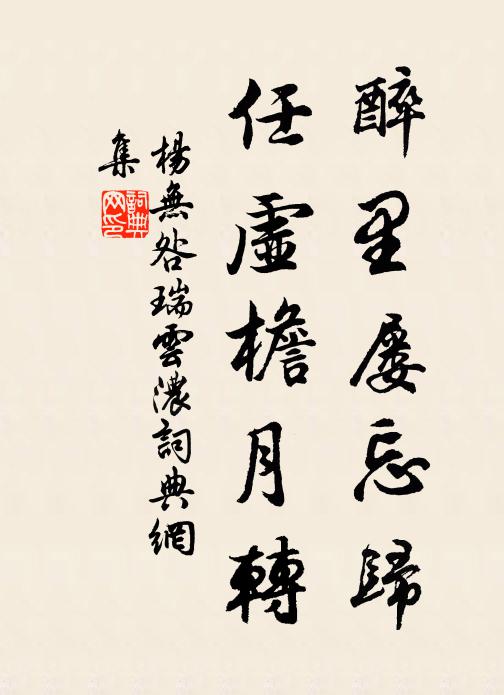 醉里屡忘歸
任虛檐月轉
楊無咎瑞雲濃詞典網
集
詞典網印